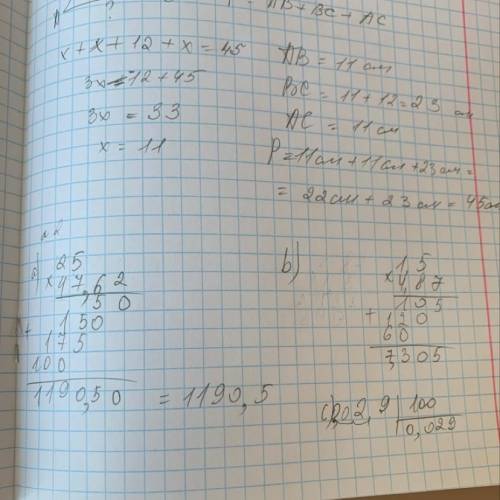 A ? P = AB + BC + AC
x + x + 12 + x = 45
3x = -12 + 45
3x = 33
x = 11
AB = 11 см
BC = 11 + 12 = 23 см
AC = 11 см
P = 11 см + 11 см + 23 см =
= 22 см + 23 см = 45 см
№ 2
a) 25
x 47,62
150
+ 150
175
100
1190,50 = 1190,5
b) 1,5
x 4,87
105
+ 120
60
7,305
c) 02,9 | 100
0,029